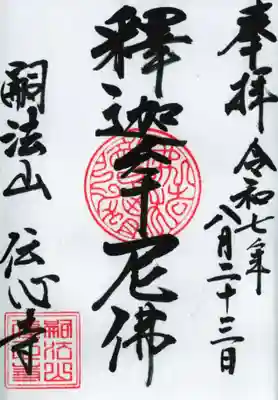 奉拝 令和七年
八月二十三日
釋迦牟尼佛
嗣法山 伝心寺
嗣法山